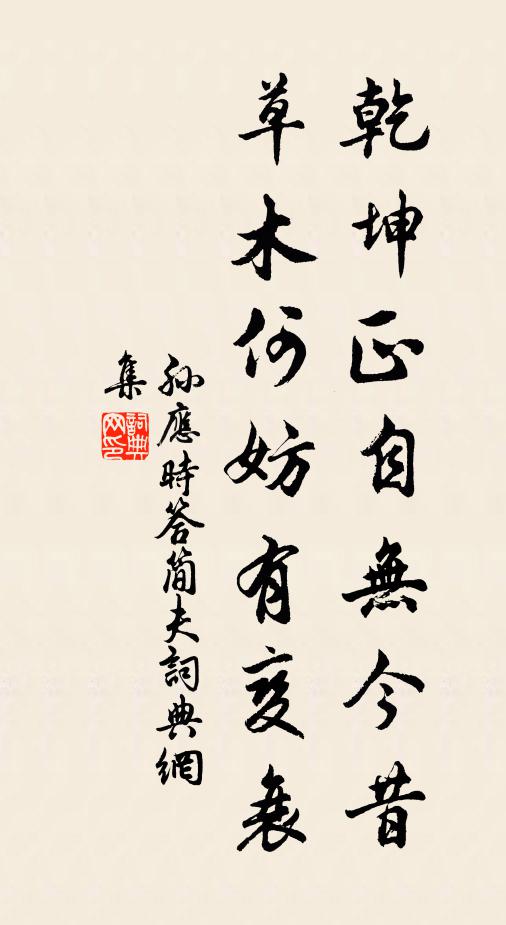 乾坤正自無今昔
草木何妨有变衰
孫應時答簡夫詞典網
集
詞典
网印